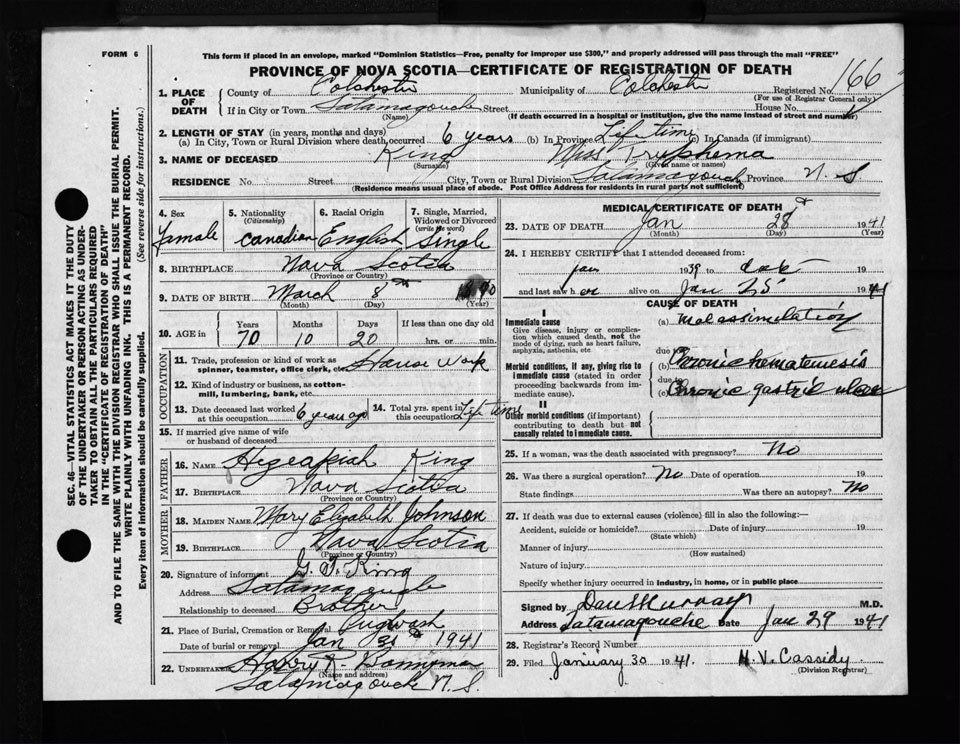 FORM 6
This form if placed in an envelope, marked "Dominion Statistics—Free, penalty for improper use $300," and properly addressed will pass through the mail "FREE"
PROVINCE OF NOVA SCOTIA—CERTIFICATE OF REGISTRATION OF DEATH
1. PLACE OF DEATH
County of Colchester Municipality of Colchester Registered No. 166
(For use of Registrar General only)
If in City or Town Tatamagouche Street House No.
(Name) (If death occurred in a hospital or institution, give the name instead of street and number)
2. LENGTH OF STAY (in years, months and days)
(a) In City, Town or Rural Division where death occurred 6 years (b) In Province Life time (c) In Canada (if immigrant)
3. NAME OF DECEASED King Miss Tryphema
(Surname) (Given name or names)
RESIDENCE No. Street City, Town or Rural Division Tatamagouche Province N. S
(Residence means usual place of abode. Post Office Address for residents in rural parts not sufficient)
4. Sex Female
5. Nationality (Citizenship) Canadian
6. Racial Origin English
7. Single, Married, Widowed or Divorced (write the word) Single
8. BIRTHPLACE Nova Scotia
(Province or Country)
9. DATE OF BIRTH March 8th
(Month) (Day) (Year)
10. AGE in Years 70 Months 10 Days 20 If less than one day hrs. or min.
OCCUPATION
11. Trade, profession or kind of work as spinner, teamster, office clerk, etc. House Work
12. Kind of industry or business, as cotton-mill, lumbering, bank, etc.
13. Date deceased last worked at this occupation 6 years ago
14. Total yrs. spent in this occupation Life time
15. If married give name of wife or husband of deceased
FATHER
16. NAME King
17. BIRTHPLACE Nova Scotia
(Province or Country)
MOTHER
18. MAIDEN NAME Mary Elizabeth Johnson
19. BIRTHPLACE Nova Scotia
(Province or Country)
20. Signature of informant G. T. King
Address Tatamagouche
Relationship to deceased Brother
21. Place of Burial, Cremation or Removal Pugwash
Date of burial or removal Jan 1941
22. UNDERTAKER Harry
(Name and address)
Tatamagouche N. S.
MEDICAL CERTIFICATE OF DEATH
23. DATE OF DEATH Jan 28 1941
(Month) (Day) (Year)
24. I HEREBY CERTIFY that I attended deceased from:
Jan 1939 to 19
and last saw her alive on Jan 25 1941
CAUSE OF DEATH
I
Immediate cause
Give disease, injury or complication which caused death, not the mode of dying, such as heart failure, asphyxia, asthenia, etc
(a) Malassimilation
due to
Morbid conditions, if any, giving rise to immediate cause (stated in order proceeding backwards from immediate cause).
(b) Chronic hematemesis
due to
(c) Chronic gastric ulcer
II
Other morbid conditions (if important) contributing to death but not causally related to immediate cause.
25. If a woman, was the death associated with pregnancy? No
26. Was there a surgical operation? No Date of operation 19
State findings Was there an autopsy? No
27. If death was due to external causes (violence) fill in also the following:—
Accident, suicide or homicide? Date of injury 19
(State which)
Manner of injury
(How sustained)
Nature of injury
Specify whether injury occurred in Industry, in home, or in public place
Signed by Dan Murray M.D.
Address Tatamagouche Date Jan 29 1941
28. Registrar's Record Number
29. Filed January 30 1941. H. V. Cassidy
(Division Registrar)
SEC. 46—VITAL STATISTICS ACT MAKES IT THE DUTY
OF THE UNDERTAKER OR PERSON ACTING AS UNDER-
TAKER TO OBTAIN ALL THE PARTICULARS REQUIRED
IN THE "CERTIFICATE OF REGISTRATION OF DEATH"
AND TO FILE THE SAME WITH THE DIVISION REGISTRAR WHO SHALL ISSUE THE BURIAL PERMIT.
WRITE PLAINLY WITH UNFADING INK. THIS IS A PERMANENT RECORD.
Every item of information should be carefully supplied. (See reverse side for instructions.)